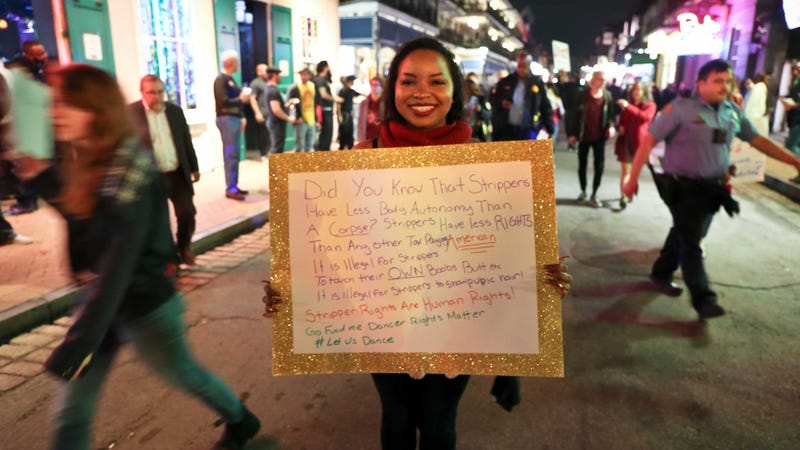 Did You Know That Strippers
Have Less Body Autonomy Than
A Corpse? Strippers Have less RIGHTS
Than Any other Tax Paying American
It is Illegal for Strippers
To touch their OWN Boobs Butt etc
It is illegal for Strippers to grow pubic hair!
Stripper Rights Are Human Rights!
Go Fund me Dancer Rights Matter
#Let Us Dance